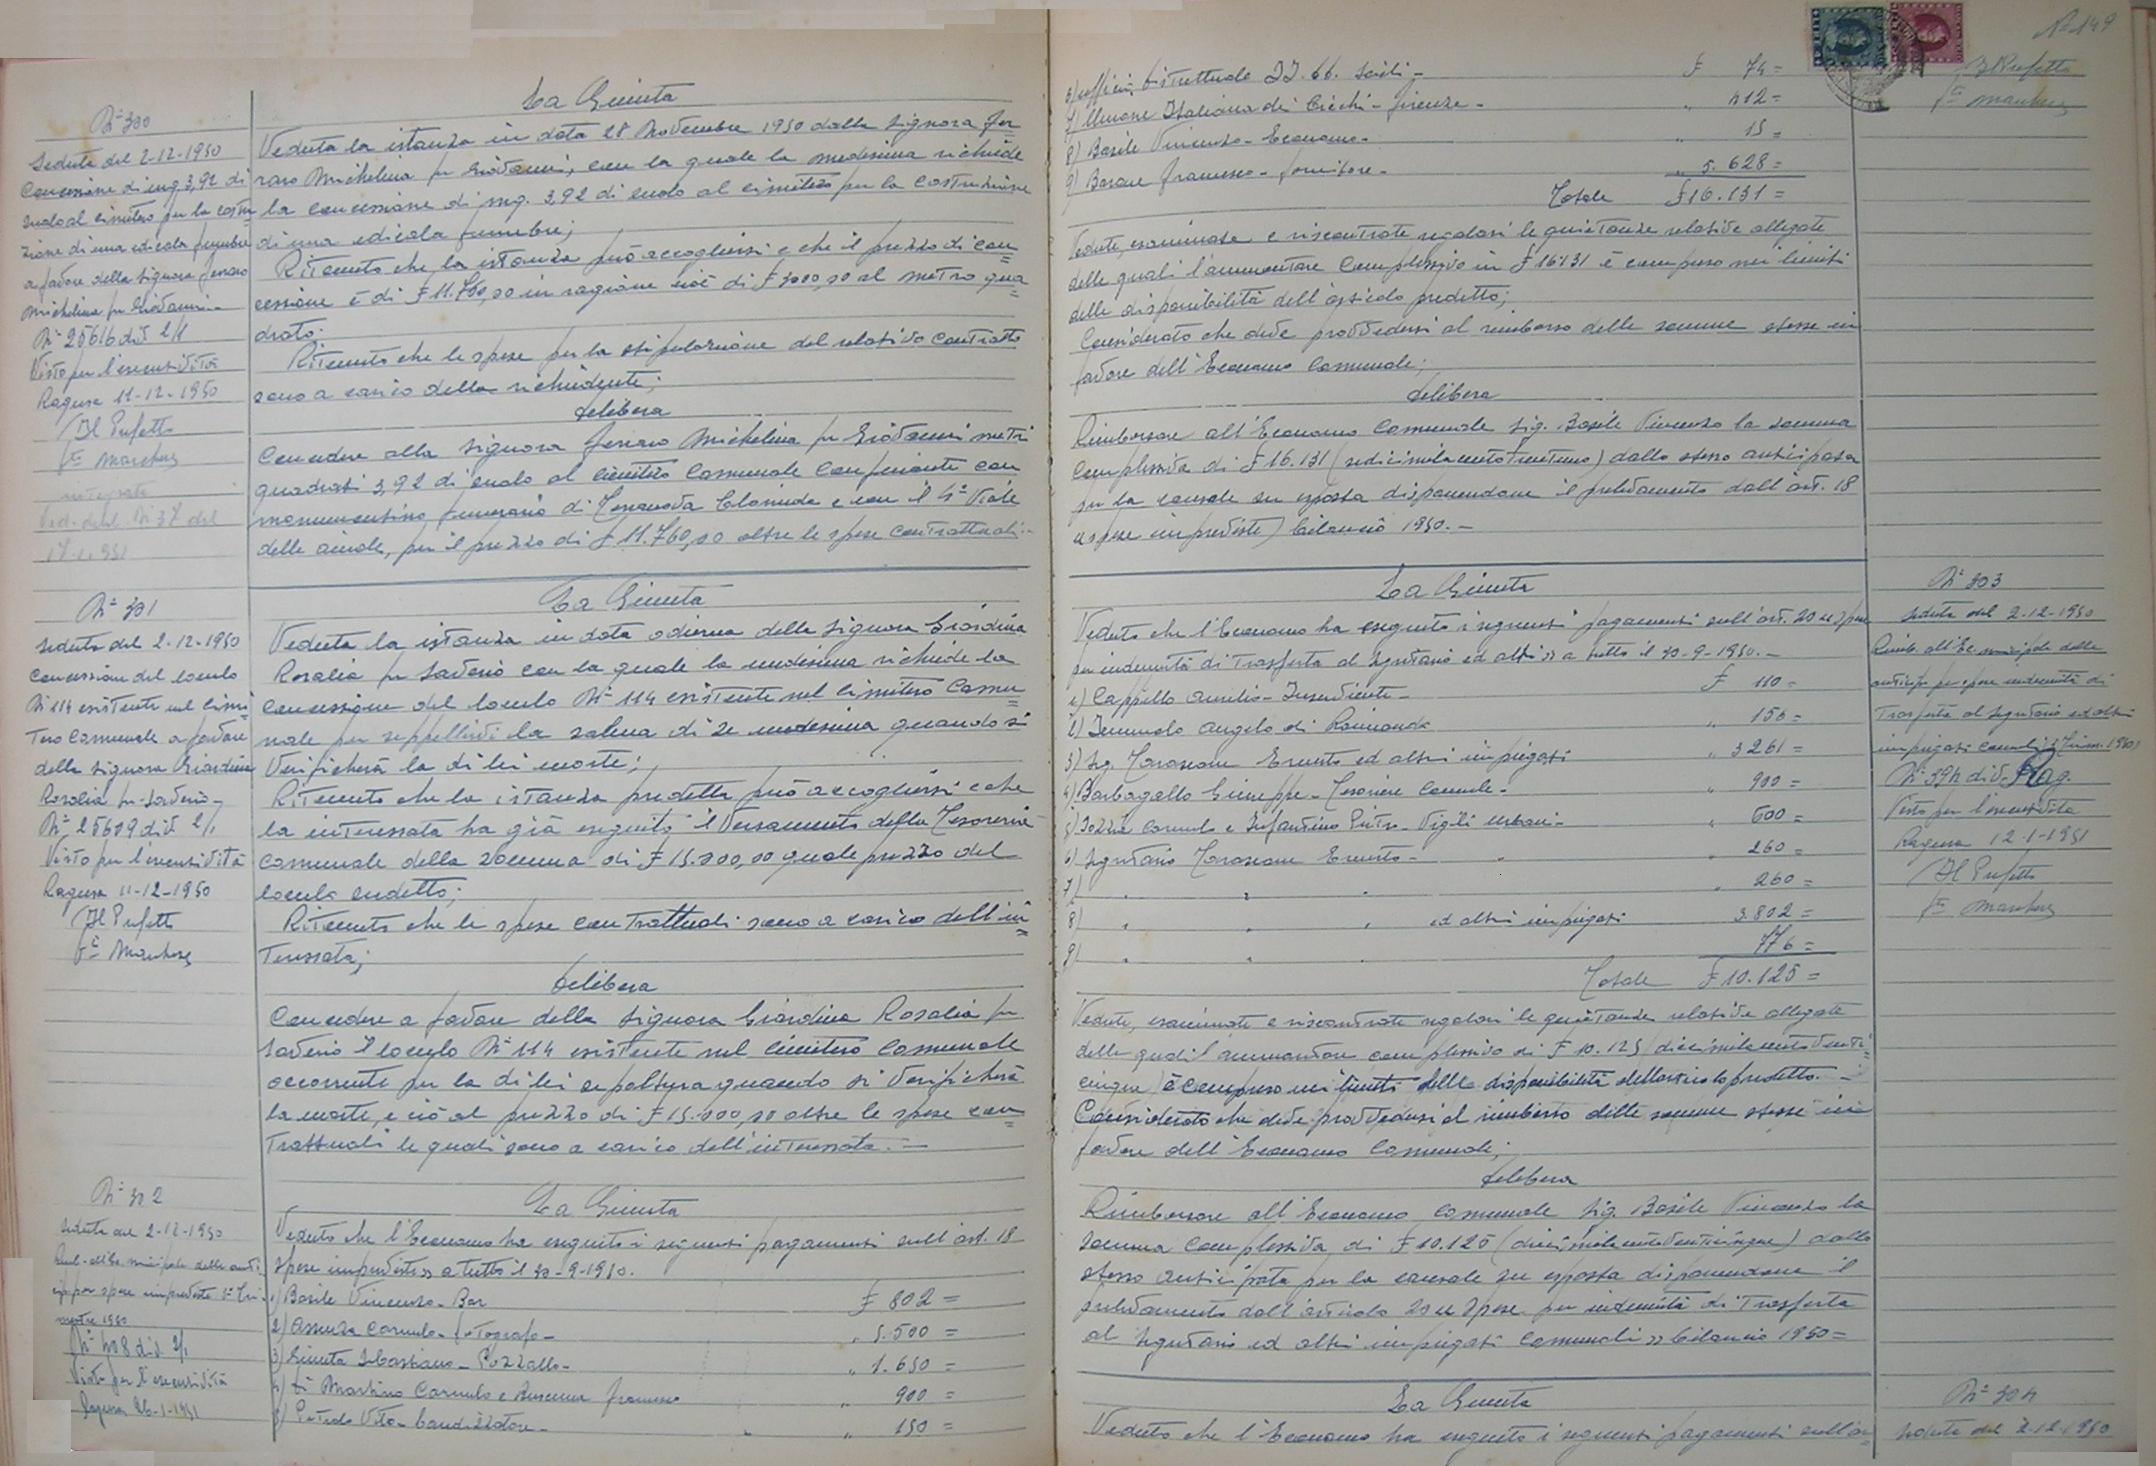 N° 300
Seduta del 2-12-1950
Concessione di mq. 3,92 di
suolo al cimitero per la costru
zione di una edicola funebre
a favore della signora Ferraro
Michelina fu Giovanni -
N° 25616 div 2/1
Visto per l'esecutività
Ragusa 11-12-1950
Il Prefetto
F.to Marchese
Ved. del. N° 37 del
17-1-1951
La Giunta
Veduta la istanza in data 28 Novembre 1950 della Signora Fer=
raro Michelina fu Giovanni, con la quale la medesima richiede
la concessione di mq. 3,92 di suolo al cimitero per la costruzione
di una edicola funebre;
Ritenuto che la istanza può accogliersi e che il prezzo di con=
cessione è di £ 11.760,00 in ragione cioè di £ 3000,00 al metro qua=
drato.
Ritenuto che le spese per la stipulazione del relativo contratto
sono a carico della richiedente;
delibera
Concedere alla Signora Ferraro Michelina fu Giovanni metri
quadrati 3,92 di suolo al cimitero Comunale confinante con
monumentino funerario di Terranova Clomide e con il 4° Viale
delle aiuole, per il prezzo di £ 11.760,00 oltre le spese contrattuali. -
N° 301
Seduta del 2-12-1950
Concessione del loculo
N° 114 esistente nel cimi
tero Comunale a favore
della Signora Giardina
Rosalia fu Saverio -
N° 25609 div 2/1
Visto per l'esecutività
Ragusa 11-12-1950
Il Prefetto
F.to Marchese
La Giunta
Veduta la istanza in data odierna della Signora Giardina
Rosalia fu Saverio con la quale la medesima richiede la
concessione del loculo N° 114 esistente nel cimitero Comu=
nale per seppellirvi la salma di se medesima quando si
verificherà la di lei morte;
Ritenuto che la istanza predetta può accogliersi e che
la interessata ha già eseguito il versamento della Tesoreria
Comunale della somma di £ 15.000,00 quale prezzo del
loculo sudetto;
Ritenuto che le spese contrattuali sono a carico dell'in=
teressata;
delibera
Concedere a favore della Signora Giardina Rosalia fu
Saverio il loculo N° 114 esistente nel cimitero Comunale
occorrente per la di lei sepoltura quando si verificherà
la morte, e ciò al prezzo di £ 15.000,00 oltre le spese con=
trattuali le quali sono a carico dell'interessata. -
N° 302
Seduta del 2-12-1950
Rimb. all'Ec. municipale delle anti
cip. per spese impreviste 3° Tri
mestre 1950
N° 408 div. 2/1
Visto per l'esecutività
Ragusa 26-1-1951
La Giunta
Veduto che l'Economo ha eseguito i seguenti pagamenti sull'art. 18
Spese impreviste» a tutto il 30-9-1950.
1) Basile Vincenzo - Bar £ 802 =
2) Assenza Carmelo - fotografo - " 5.500 =
3) Giunta Sebastiano - Pozzallo - " 1.650 =
4) Di Martino Carmelo e Francesco " 900 =
5) Vito - banditore - " 150 =
N° 149
Il Prefetto
F.to Marchese
6) Ufficio distrettuale II. DD. Scicli - £ 74 =
7) Unione Italiana dei Ciechi - Firenze - " 1412 =
8) Basile Vincenzo - Economo - " 15 =
9) Francesco - fornitore - " 5.628 =
Totale £ 16.131 =
Vedute, esaminate e riscontrate regolari le quietanze relative allegate
delle quali l'ammontare complessivo in £ 16131 è compreso nei limiti
delle disponibilità dell'articolo predetto;
Considerato che deve provvedersi al rimborso delle somme stesse in
favore dell'Economo Comunale;
delibera
Rimborsare all'Economo Comunale Sig. Basile Vincenzo la somma
complessiva di £ 16.131 (sedicimilacentotrentuno) dallo stesso anticipata
per la causale su esposta disponendone il prelevamento dall'art. 18
«spese impreviste» bilancio 1950. -
La Giunta
Veduto che l'Economo ha eseguito i seguenti pagamenti sull'art. 20 «spese
per indennità di trasferta al Segretario ed altri» a tutto il 30-9-1950. -
1) Cappello Aurelio - Inserviente - £ 110 =
2) Angelo di Raimondo " 156 =
3) Sig. Tarascone Ernesto ed altri impiegati " 3261 =
4) Barbagallo Giuseppe - Tesoriere Comunale - " 900 =
5) Carmelo e Infantino Pietro - Vigili urbani - " 600 =
6) Segretario Tarascone Ernesto - " 260 =
7) " " " " 260 =
8) " " " ed altri impiegati 3.802 =
9) " " " 776 =
Totale £ 10.125 =
Vedute, esaminate e riscontrate regolari le quietanze relative allegate
delle quali l'ammontare complessivo di £ 10.125 (diecimilacentoventi=
cinque) è compreso nei limiti delle disponibilità dell'articolo predetto. -
Considerato che deve provvedersi al rimborso delle somme stesse in
favore dell'Economo Comunale;
delibera
Rimborsare all'Economo Comunale Sig. Basile Vincenzo la
somma complessiva di £ 10.125 (diecimilacentoventicinque) dallo
stesso anticipata per la causale su esposta disponendone il
prelevamento dall'articolo 20 «Spese per indennità di trasferta
al Segretario ed altri impiegati comunali» bilancio 1950 =
N° 303
Seduta del 2-12-1950
Rimb. all'Ec. municipale delle
anticip. per spese indennità di
trasferta al Segretario ed altri
impiegati comunali 3° Trim. 1950
N° 394 div. Rag.
Visto per l'esecutività
Ragusa 12-1-1951
Il Prefetto
F.to Marchese
La Giunta
Veduto che l'Economo ha eseguito i seguenti pagamenti sull'ar=
N° 304
Seduta del 2-12-1950